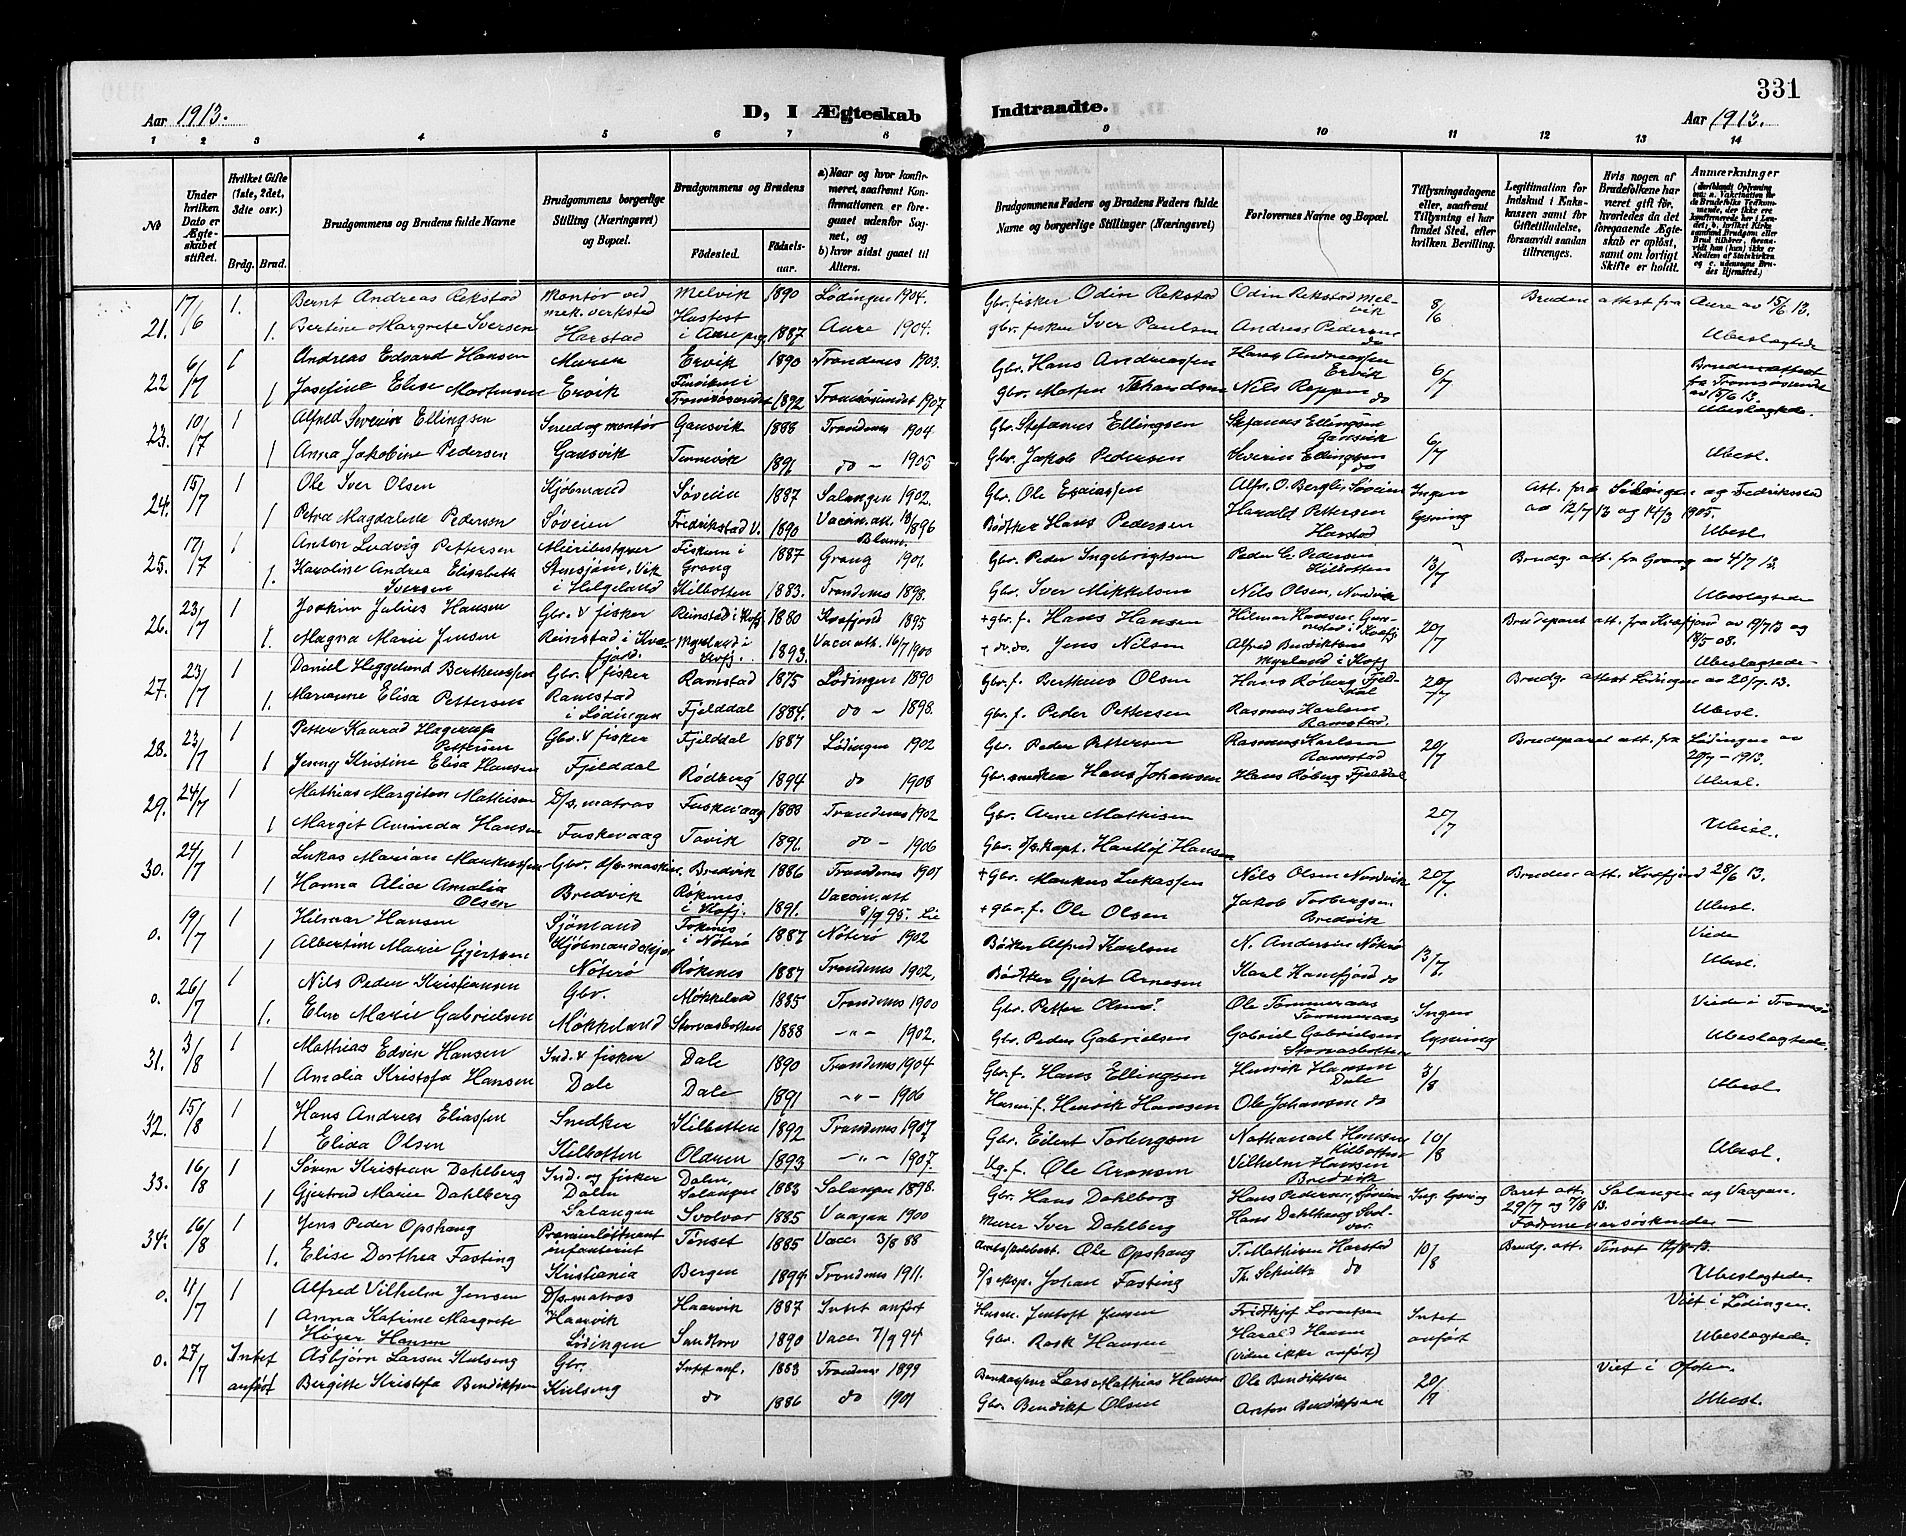 331
Aar 1913.
D, I Ægteskab Indtraadte.
Aar 1913.
1 2 3 4 5 6 7 8 9 10 11 12 13 14
No
Under hvilken Dato er Ægteskabet stiftet.
Hvilket Gifte (1ste, 2det, 3dte osv.)
Brdg. Brud.
Brudgommens og Brudens fulde Navne
Brudgommens borgerlige Stilling (Næringsvei) og Bopæl.
Brudgommens og Brudens
Fødested. Fødselsaar.
a) Naar og hvor konfirmeret, saafremt Konfirmationen er foregaaet udenfor Sognet, og
b) hvor sidst gaaet til Alters.
Brudgommens Faders og Brudens Faders fulde Navne og borgerlige Stillinger (Næringsvei)
Forlovernes Navne og Bopæl.
Tillysningsdagene eller, saafremt Tillysning ei har fundet Sted, efter hvilken Bevilling.
Legitimation for Indskud i Enkekassen samt for Giftetilladelse, forsaavidt saadan tiltrænges.
Hvis nogen af Brudefolkene har været gift før, hvorledes da det foregaaende Ægteskab er opløst, samt om lovligt Skifte er holdt.
Anmærkninger
21. 17/6 1. Bernt Andreas Rekstad Montør ved mek. verksted Melvik 1890 Lødingen 1904. Gbr. fisker Odin Rekstad Odin Rekstad Melvik 8/6 Bruden attest fra Aure av 15/6 13.
1. Bertine Margrete Iversen Harstad i Aure 1887 Aure 1904. gbr. fisker Iver Paulsen Andreas Pedersen do Ubeslagtede
22 6/7 1 Andreas Edvard Hansen Murer Ervik 1890 Trondenes 1903. Gbr. Hans Andreassen Hans Andreassen Ervik 6/7
1 Josefine Elise Mortensen Ervik Tromsøsundet 1892 Tromsøsundet 1907 Gbr. Morten Nils Reppen do fra Tromsøsundet av 15/6 13. Ubeslagtede
23. 10/7 1 Alfred Severin Ellingsen Smed og montør Gansvik 1888 Trondenes 1904 Gbr. Stefanus Ellingsen Stefanus Ellingsen Gansvik 6/7
1 Anna Jakobine Pedersen Gansvik Tennevik 1891 do - 1905 Gbr. Jakob Pedersen Severin Ellingsen do Ubesl.
24. 15/7 1 Ole Iver Olsen Kjøbmand Søveien 1887 Salangen 1902. Gbr. Ole Esaiassen Alfr. O. Berglis Søveien Ingen lysning Att. fra Lødingen og Fredriksstad av 12/7 13 og 14/3 1905.
1 Petra Magdalene Pedersen Søveien Fredrikstad V. 1890 Vaccin. att. Bødtker Hans Pedersen Harald Pettersen Harstad Ubesl.
25. 17/7 1 Anton Ludvig Pettersen Meieribestyrer Fiskum i Grong 1887 Grong 1901. Gbr. Peder Ingebrigtsen Peder C. Pedersen Kilbotten 13/7 Brudg. att. fra Grong av 4/7 13
1. Karoline Andrea Elisabeth Iversen i Helgeland Kilbotten 1883. Trondenes 1898. Gbr. Iver Mikkelsen Nils Olsen, Nordvik Ubeslagtede
26. 23/7 1 Joakim Julius Hansen Gbr. & fisker Reinstad i Kvfj 1880 Kvæfjord 1895 + gbr. f. Hans Hansen Hilmar Hansen 20/7 Brudeparet att. fra Kvæfjord av 19/7 13 og 18/5 08.
1. Magna Marie Jensen Reinstad i Kvæfjord Myrland i Kvfj. 1893. Vacc. att. 16/7 1900 + do. do. Jens Nilsen Alfred Bendiktsen Myrland i Kvfj Ubeslagtede
27. 23/7 1 Daniel Heggelund Bertheussen Gbr. & fisker Ramstad 1875 Lødingen 1890 Gbr. f. Bertheus Olsen Hans Røberg Fjelddal 20/7 Brudg. attest Lødingen av 20/7 13.
1. Marianne Elisa Pettersen Ramstad i Lødingen Fjelddal 1884. do - 1898. Gbr. f. Peder Pettersen Rasmus Karlsen Ramstad. Ubesl.
28. 23/7 1 Petter Konrad Pettersen Gbr. & fisker Fjelddal 1887 Lødingen 1902 Gbr. Peder Pettersen Rasmus Karlsen Ramstad 20/7 Brudeparet att. fra Lødingen av 20/7 - 1913.
1 Jenny Kristine Elisa Hansen Fjelddal Rødberg 1894 do 1908 Gbr. snedker Hans Johansen Hans Røberg Fjelddal Ubesl.
29. 24/7 1 Mathias Margiton Mathisen D/s. matros Fuskevaag 1888 Trondenes 1902 Gbr. Arne Mathisen 20/7
1 Margit Aminda Hansen Fuskevaag Tovik 1891. do - 1906 Gbr. D/s. kapt. Hartlof Hansen Ubesl.
30. 24/7 1 Lukas Marian Markussen Gbr. d/s. maskin. Bredvik 1886 Trondenes 1901 + Gbr. Markus Lukassen Nils Olsen Nordvik 20/7. Bruden att. Kvæfjord 28/6 13.
1 Hanna Alice Amalia Olsen Bredvik Røkenes i Kvfj. 1891. Vaccin. att 8/9 95. + gbr. f. Ole Olsen Jakob Torbergsen Bredvik Ubesl.
0. 19/7 1 Hilmar Hansen Sjømand i Nøterø 1887 Nøterø 1902 Bødker Alfred Karlsen N. Andersen Nøterø 13/7. Viede
1 Albertine Marie Gjertsen Nøterø Røkenes 1887 Trondenes 1902. Bødtker Gjert Arnesen Karl do Ubesl.
0. 26/7 1 Nils Peder Kristiansen Gbr. Møkkeland 1885 Trondenes 1900 Gbr. Petter Olsen! Ole Tømmeraas Tømmeraas Ingen lysning Viede i Tromsø
1. Elen Marie Gabrielsen Møkkeland Storvasbotten 1888 -"- 1902. Gbr. Peder Gabrielsen Gabriel Gabrielsen Storvasbotten Ubeslagtede.
31. 3/8 1 Mathias Edvin Hansen Ind. & fisker Dale 1890 Trondenes 1904 Gbr. f. Hans Ellingsen Henrik Hansen Dale 3/8
1 Amalia Kristofa Hansen Dale Dale 1891 -"- 1906 Husm. f. Henrik Hansen Ole Johansen do Ubesl
32. 15/8 1 Hans Andreas Eliassen Snedker Kilbotten 1892 Trondenes 1907 Gbr. Eilert Torbergsen Nathanael Hanssen Kilbotten 10/8
1 Elida Olsen Kilbotten Oldren 1893 -"- 1907. Ole Aronsen Vilhelm Hansen Bredvik Ubesl.
33. 16/8 1 Søren Kristian Dahlberg Ind. og fisker Dalen, Salangen 1883 Salangen 1898. Gbr. Hans Dahlberg Hans Pedersen, Ing. lysning Paret att. 29/7 og 7/8 13. Salangen og Vaagan.
1 Gjertrud Marie Dahlberg Dalen Salangen Svolvær 1885 Vaagan 1900 Murer Iver Dahlberg Hans Dahlberg Svolvær. Fødmenærsøskende -
34. 16/8 1 Jens Peder Opshaug Premierløitnant infanteriet Tønset 1885 Vacc. 3/8 88 Ole Opshaug T. Mathisen Harstad 10/8 Brudg. att. Tønset 12/8-13.
1. Elise Dorthea Fasting Kristiania Bergen 1894. Trondenes 1911. D/s exp. Johan Fasting Th. Schultz do Ubeslagtede.
0. 4/7 1 Alfred Vilhelm Jensen D/s. matros Haarvik 1887 Intet anført Husm. Jentoft Jensen Fridthjof Lorentsen Intet anført Viet i Lødingen.
1 Anna Katrine Margrete Høyer Hansen Haarvik Lødingen Sandtorv 1890 Vacc. 7/9 94 Gbr. Rask Hansen Harald Hansen (Viden ikke anført) Ubeslagtede.
0. 27/7 Intet anført Asbjørn Larsen Kulseng Gbr. Intet anf. 1883 Trondenes 1899 Lars Mathias Hansen Ole Bendiktsen 20/7 Viet i Ofoten.
Bergitte Kristofa Bendiktsen Kulseng do 1886 do 1901 Gbr. Bendikt Olsen Anton Bendiktsen Ubesl.